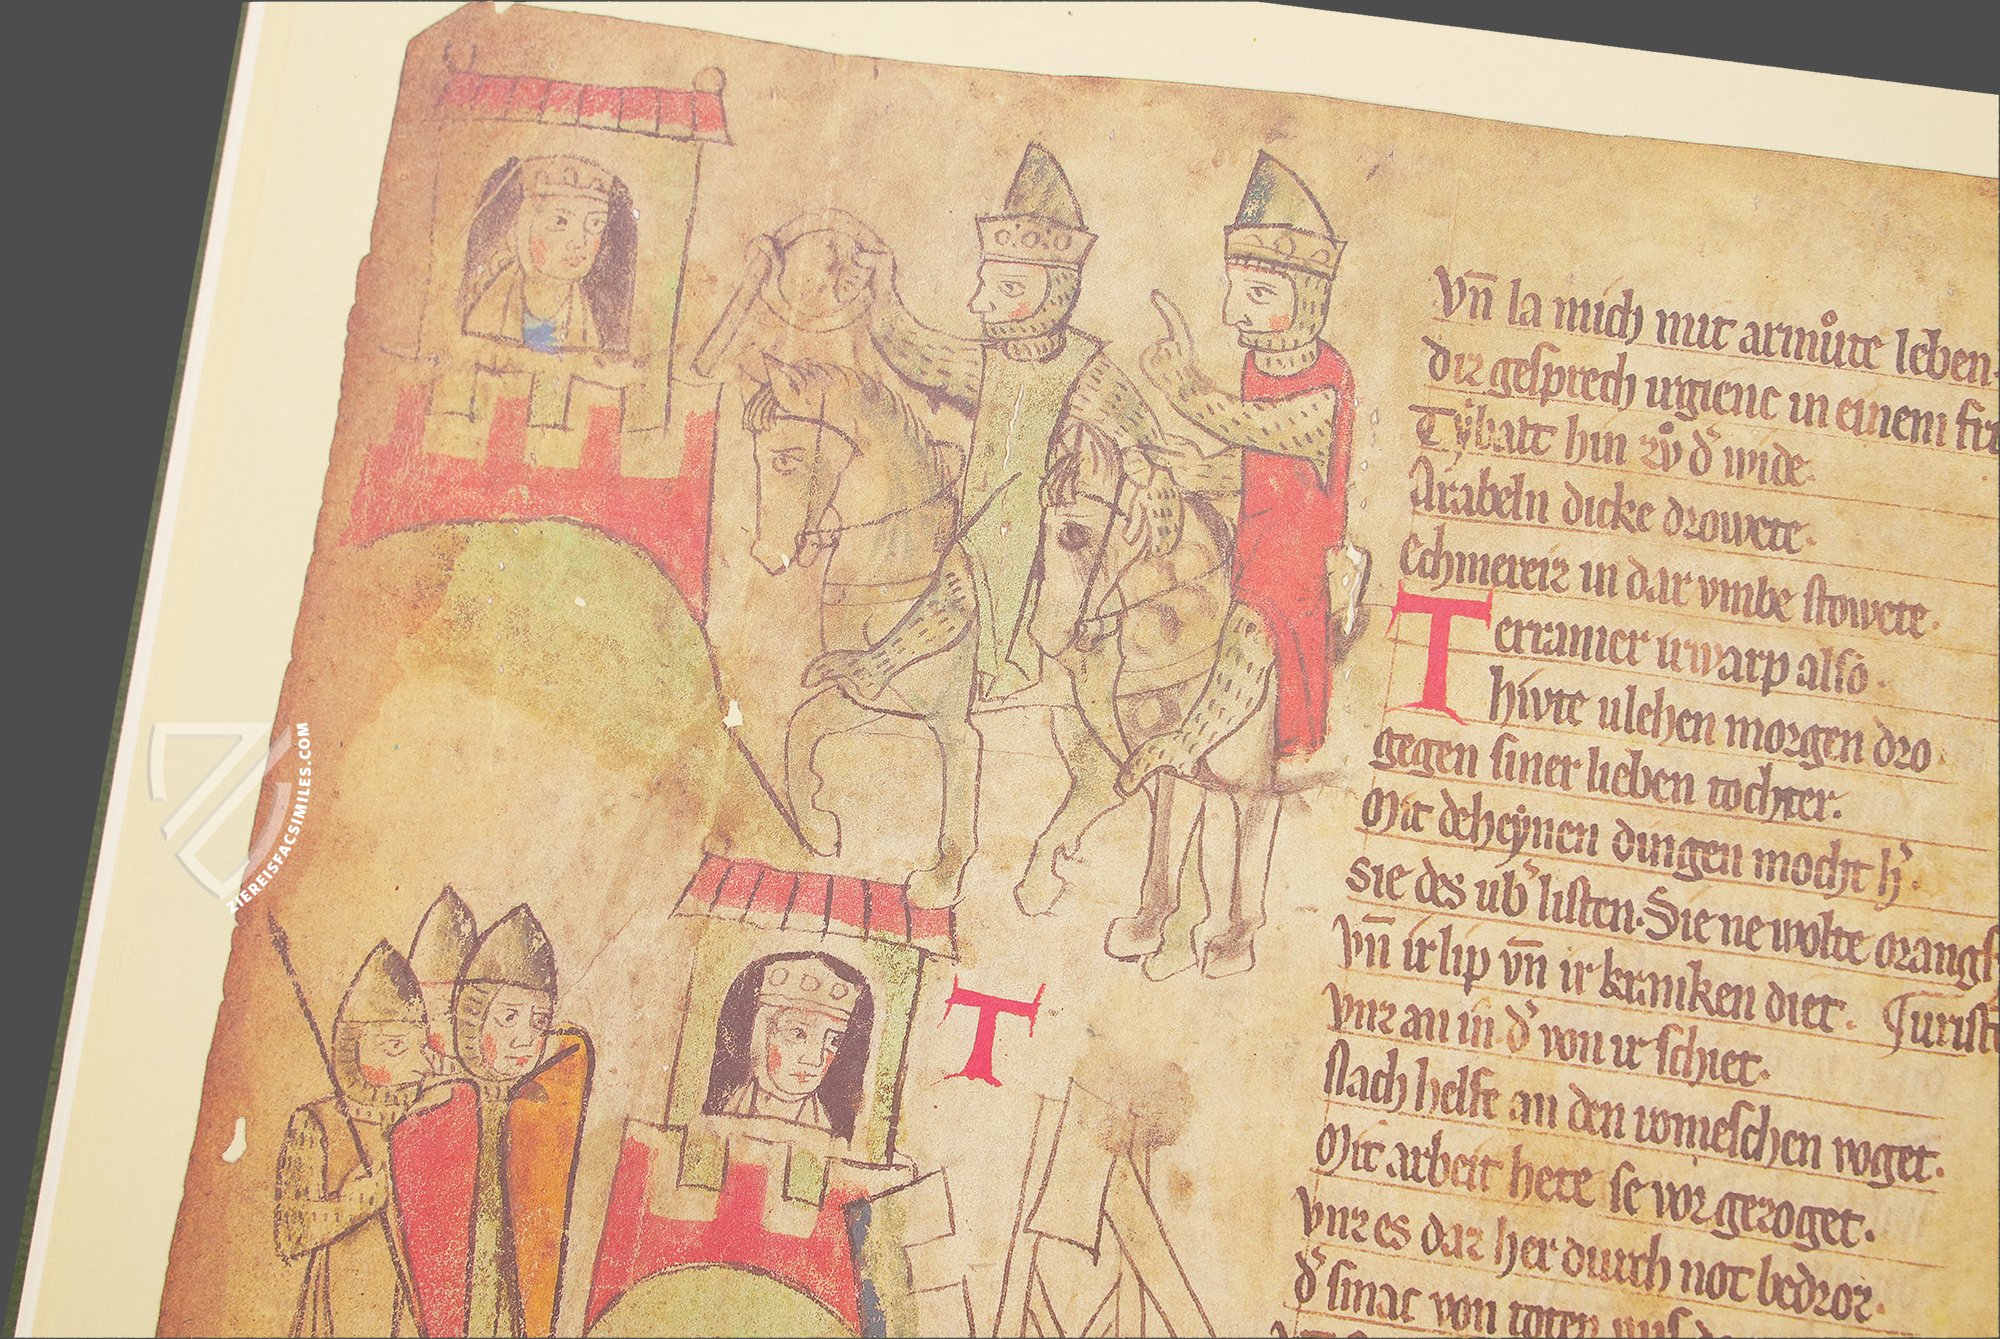 vn̄ la mich mit armůte leben·
dir gesprech irgienc in einem
Tybalt hin zů d' wide·
Arabeln dicke drowete·
Ehmereiz in dar vmbe stowete·
Terramer irwarp also·
hivte vlehen morgen dro
gegen siner lieben tochter·
Mit deheynen dingen mocht h'·
Sie des ub' listen· Sie ne wolte
vn̄ ir lip vn̄ ir kranken diet·
vnz an in d' von ir schiet·
Nach helfe an den romeschen voget·
Mit arbeit hete se vor gezoget·
vnz es dar her durch not bedroz·
d' smac von toten
T
ZIEREISFACSIMILES.COM